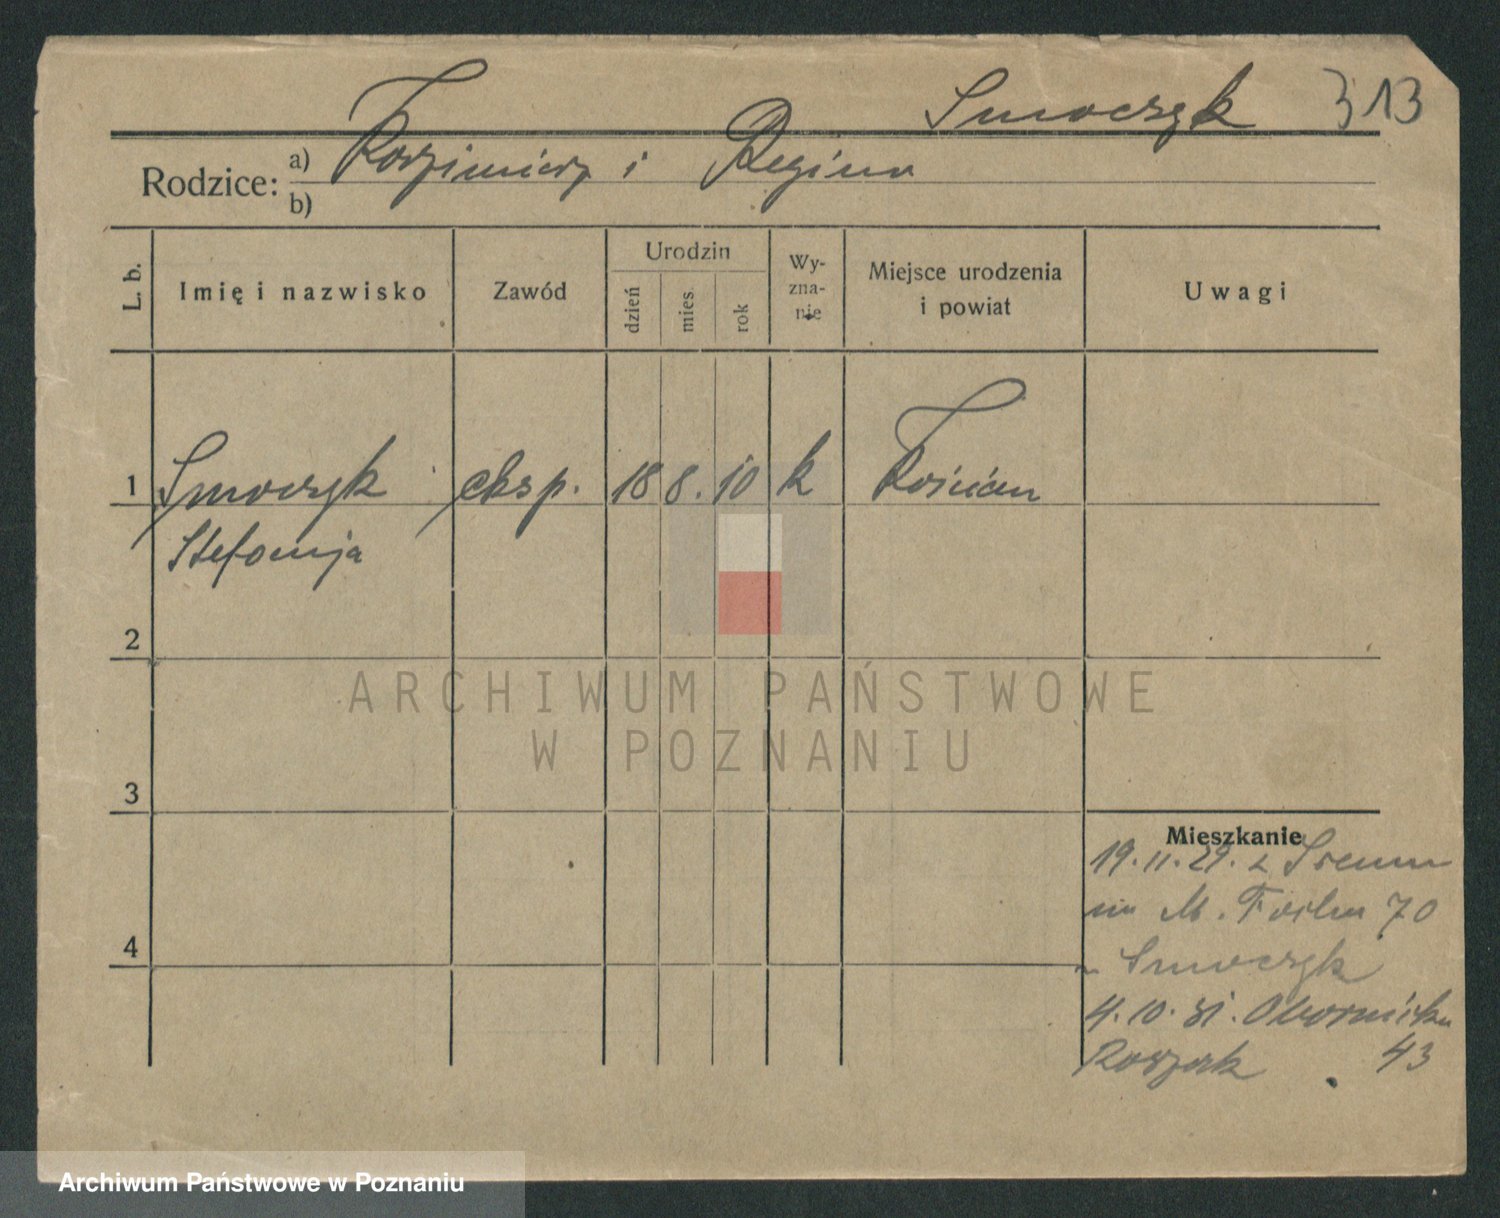 Smoczyk 313
Rodzice: a) Kazimierz i Regina
b)
L. b. Imię i nazwisko Zawód Urodzin dzień mies. rok Wyznanie Miejsce urodzenia i powiat Uwagi
1 Smoczyk eksp. 18 8. 10 k Kościan
Stefanja
2
3
Mieszkanie
19. 11. 29. z Śremu
M. Focha 70
Smoczyk
4
4. 10. 31. Obornicka
43
ARCHIWUM PAŃSTWOWE
W POZNANIU
Archiwum Państwowe w Poznaniu